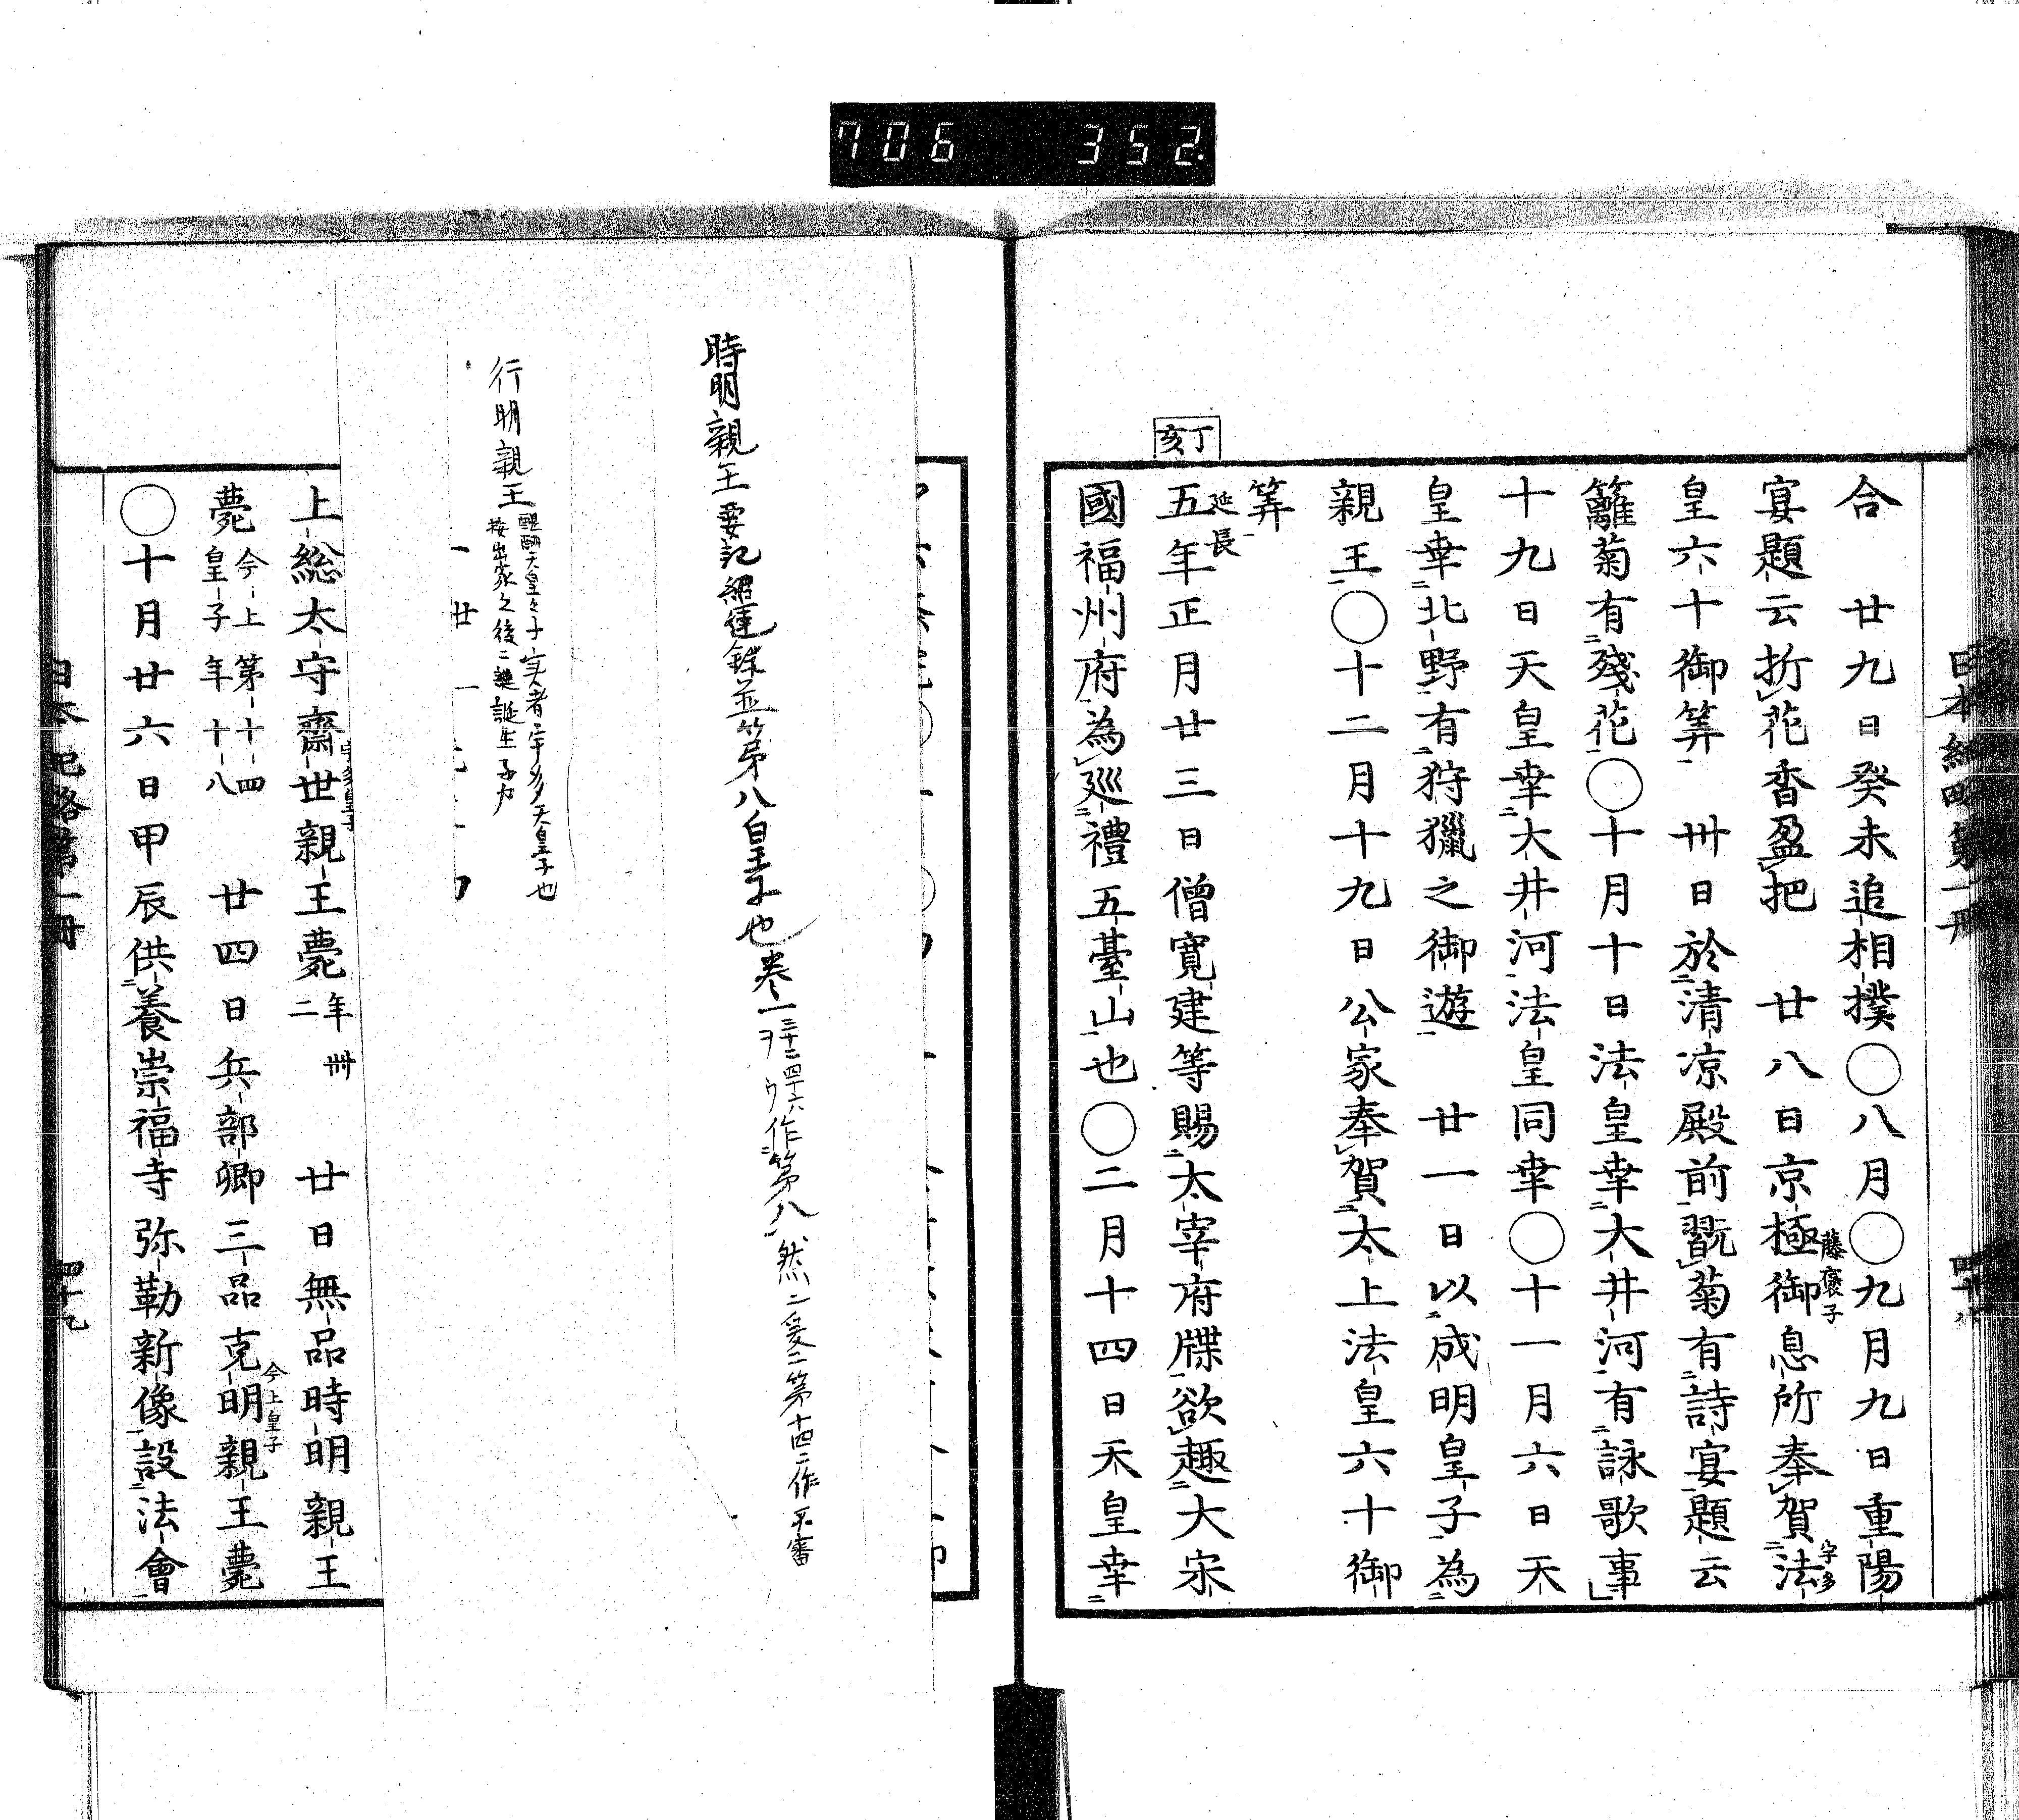 706 352.
日本紀略第一冊 四十八
合 廿九日癸未追相撲○八月○九月九日重陽
宴題云折花香盈把 廿八日京極御息所奉賀法
藤褒子
宇多
皇六十御筭 卅日於清凉殿前翫菊有詩宴題云
籬菊有殘花○十月十日法皇幸大井河有詠歌事
十九日天皇幸大井河法皇同幸○十一月六日天
皇幸北野有狩獵之御遊 廿一日以成明皇子為
親王○十二月十九日公家奉賀太上法皇六十御
筭
丁亥
延長
五年正月廿三日僧寛建等賜太宰府牒欲趣大宋
國福州府為巡禮五臺山也○二月十四日天皇幸
時明親王要記紹運録並第八皇子也巻一
三十二ヲ四十六ウ作第八然ニ爰ニ第十四ニ作不審
行明親王
醍醐天皇々子実者宇多天皇子也
按出家之後ニ誕生子カ
上総太守齋世親王薨年卌二 廿日無品時明親王
宇多皇子
薨今上第十四皇子年十八 廿四日兵部卿三品克明親王薨
今上皇子
○十月廿六日甲辰供養崇福寺弥勒新像設法會
日本紀略第一冊 四十九